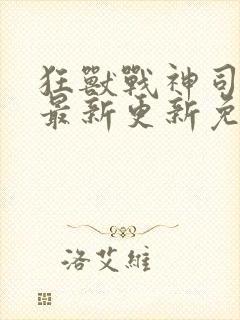 狂獸戰神司
最新更新免
洛艾維